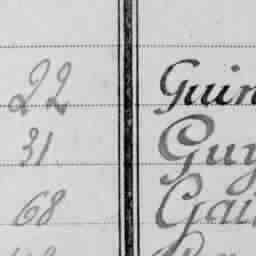 22 Guin
31 Guy
68 Gau